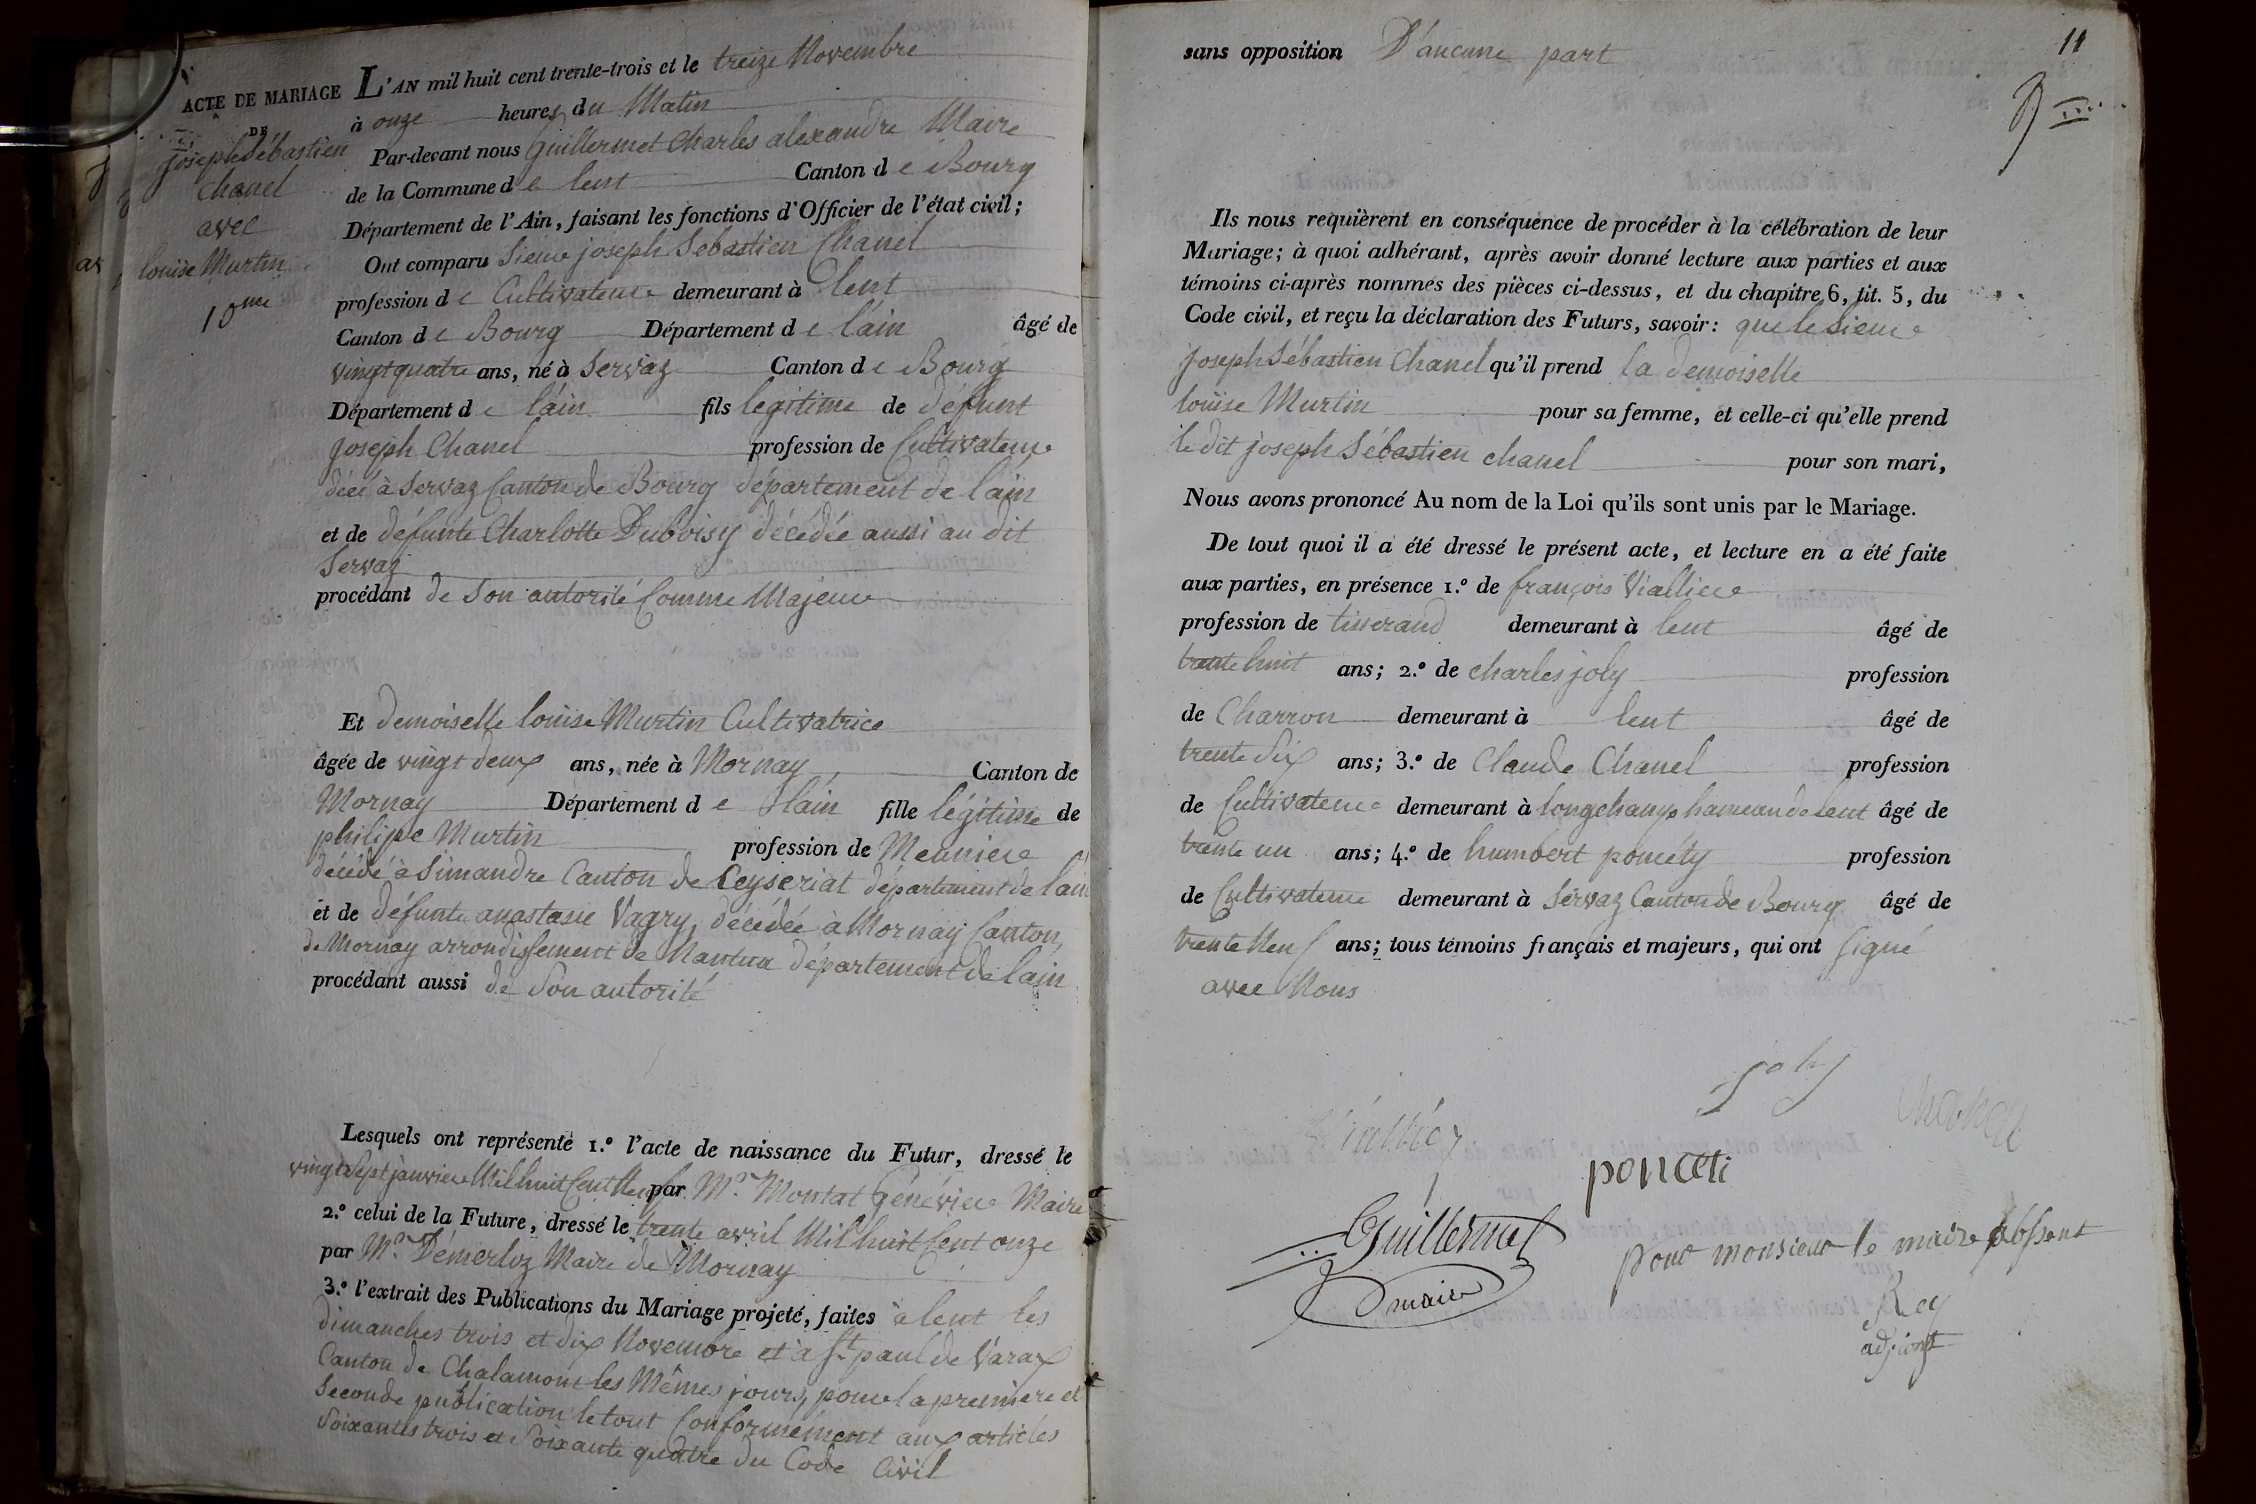 ACTE DE MARIAGE
DE
joseph Sébastien
Chanel
avec
louise Murtin
10me
L'AN mil huit cent trente-trois et le treize Novembre
à onze heures du Matin
Par-devant nous Guillermet Charles alexandre Maire
de la Commune de lent Canton de Bourg
Département de l'Ain, faisant les fonctions d'Officier de l'état civil;
Ont comparu Sieur joseph Sébastien Chanel
profession de Cultivateur demeurant à lent
Canton de Bourg Département de l'ain âgé de
vingt quatre ans, né à Servaz Canton de Bourg
Département de l'ain fils légitime de défunt
joseph Chanel profession de Cultivateur
à Servaz Canton de Bourg département de l'ain
et de défunte Charlotte Duboisy décédée aussi au dit
Servaz
procédant de Son autorité Comme Majeur
Et demoiselle louise Murtin Cultivatrice
âgée de vingt deux ans, née à Mornay Canton de
Mornay Département de l'ain fille légitime de
philipe Murtin profession de Meunier
décédé à Simandre Canton de Ceyseriat département de l'ain
et de défunte anastasie Vagry, décédée à Mornay Canton,
de Mornay arrondissement de Nantua département de l'ain
procédant aussi de Son autorité
Lesquels ont représenté 1.º l'acte de naissance du Futur, dressé le
vingt Sept janvier Mil huit Cent Neuf par Mr. Montat Génévier Maire
2.º celui de la Future, dressé le trente avril Mil huit Cent onze
par Mr. Démerloz Maire de Mornay
3.º l'extrait des Publications du Mariage projeté, faites à lent les
dimanches trois et dix Novembre et à St. paul de Varax
Canton de Chalamont les Mêmes jours, pour la premiere et
Seconde publication le tout Conformément aux articles
Soixantes trois et Soixante quatre du Code Civil
11
sans opposition D'aucune part
Ils nous requièrent en conséquence de procéder à la célébration de leur
Mariage; à quoi adhérant, après avoir donné lecture aux parties et aux
témoins ci-après nommés des pièces ci-dessus, et du chapitre 6, tit. 5, du
Code civil, et reçu la déclaration des Futurs, savoir: que le Sieur
joseph Sébastien Chanel qu'il prend la demoiselle
louise Murtin pour sa femme, et celle-ci qu'elle prend
le dit joseph Sébastien chanel pour son mari,
Nous avons prononcé Au nom de la Loi qu'ils sont unis par le Mariage.
De tout quoi il a été dressé le présent acte, et lecture en a été faite
aux parties, en présence 1.º de françois Viallier
profession de tisserand demeurant à lent âgé de
trente huit ans; 2.º de charles joly profession
de Charron demeurant à lent âgé de
trente Six ans; 3.º de Claude Chanel profession
de Cultivateur demeurant à longchamp hameau de Lent âgé de
trente un ans; 4.º de humbert poncéty profession
de Cultivateur demeurant à Servaz Canton de Bourg âgé de
trente Neuf ans; tous témoins français et majeurs, qui ont Signé
avec Nous
joly
ponceti
Guillermet
maire
pour monsieur le maire absent
Rey
adjoint